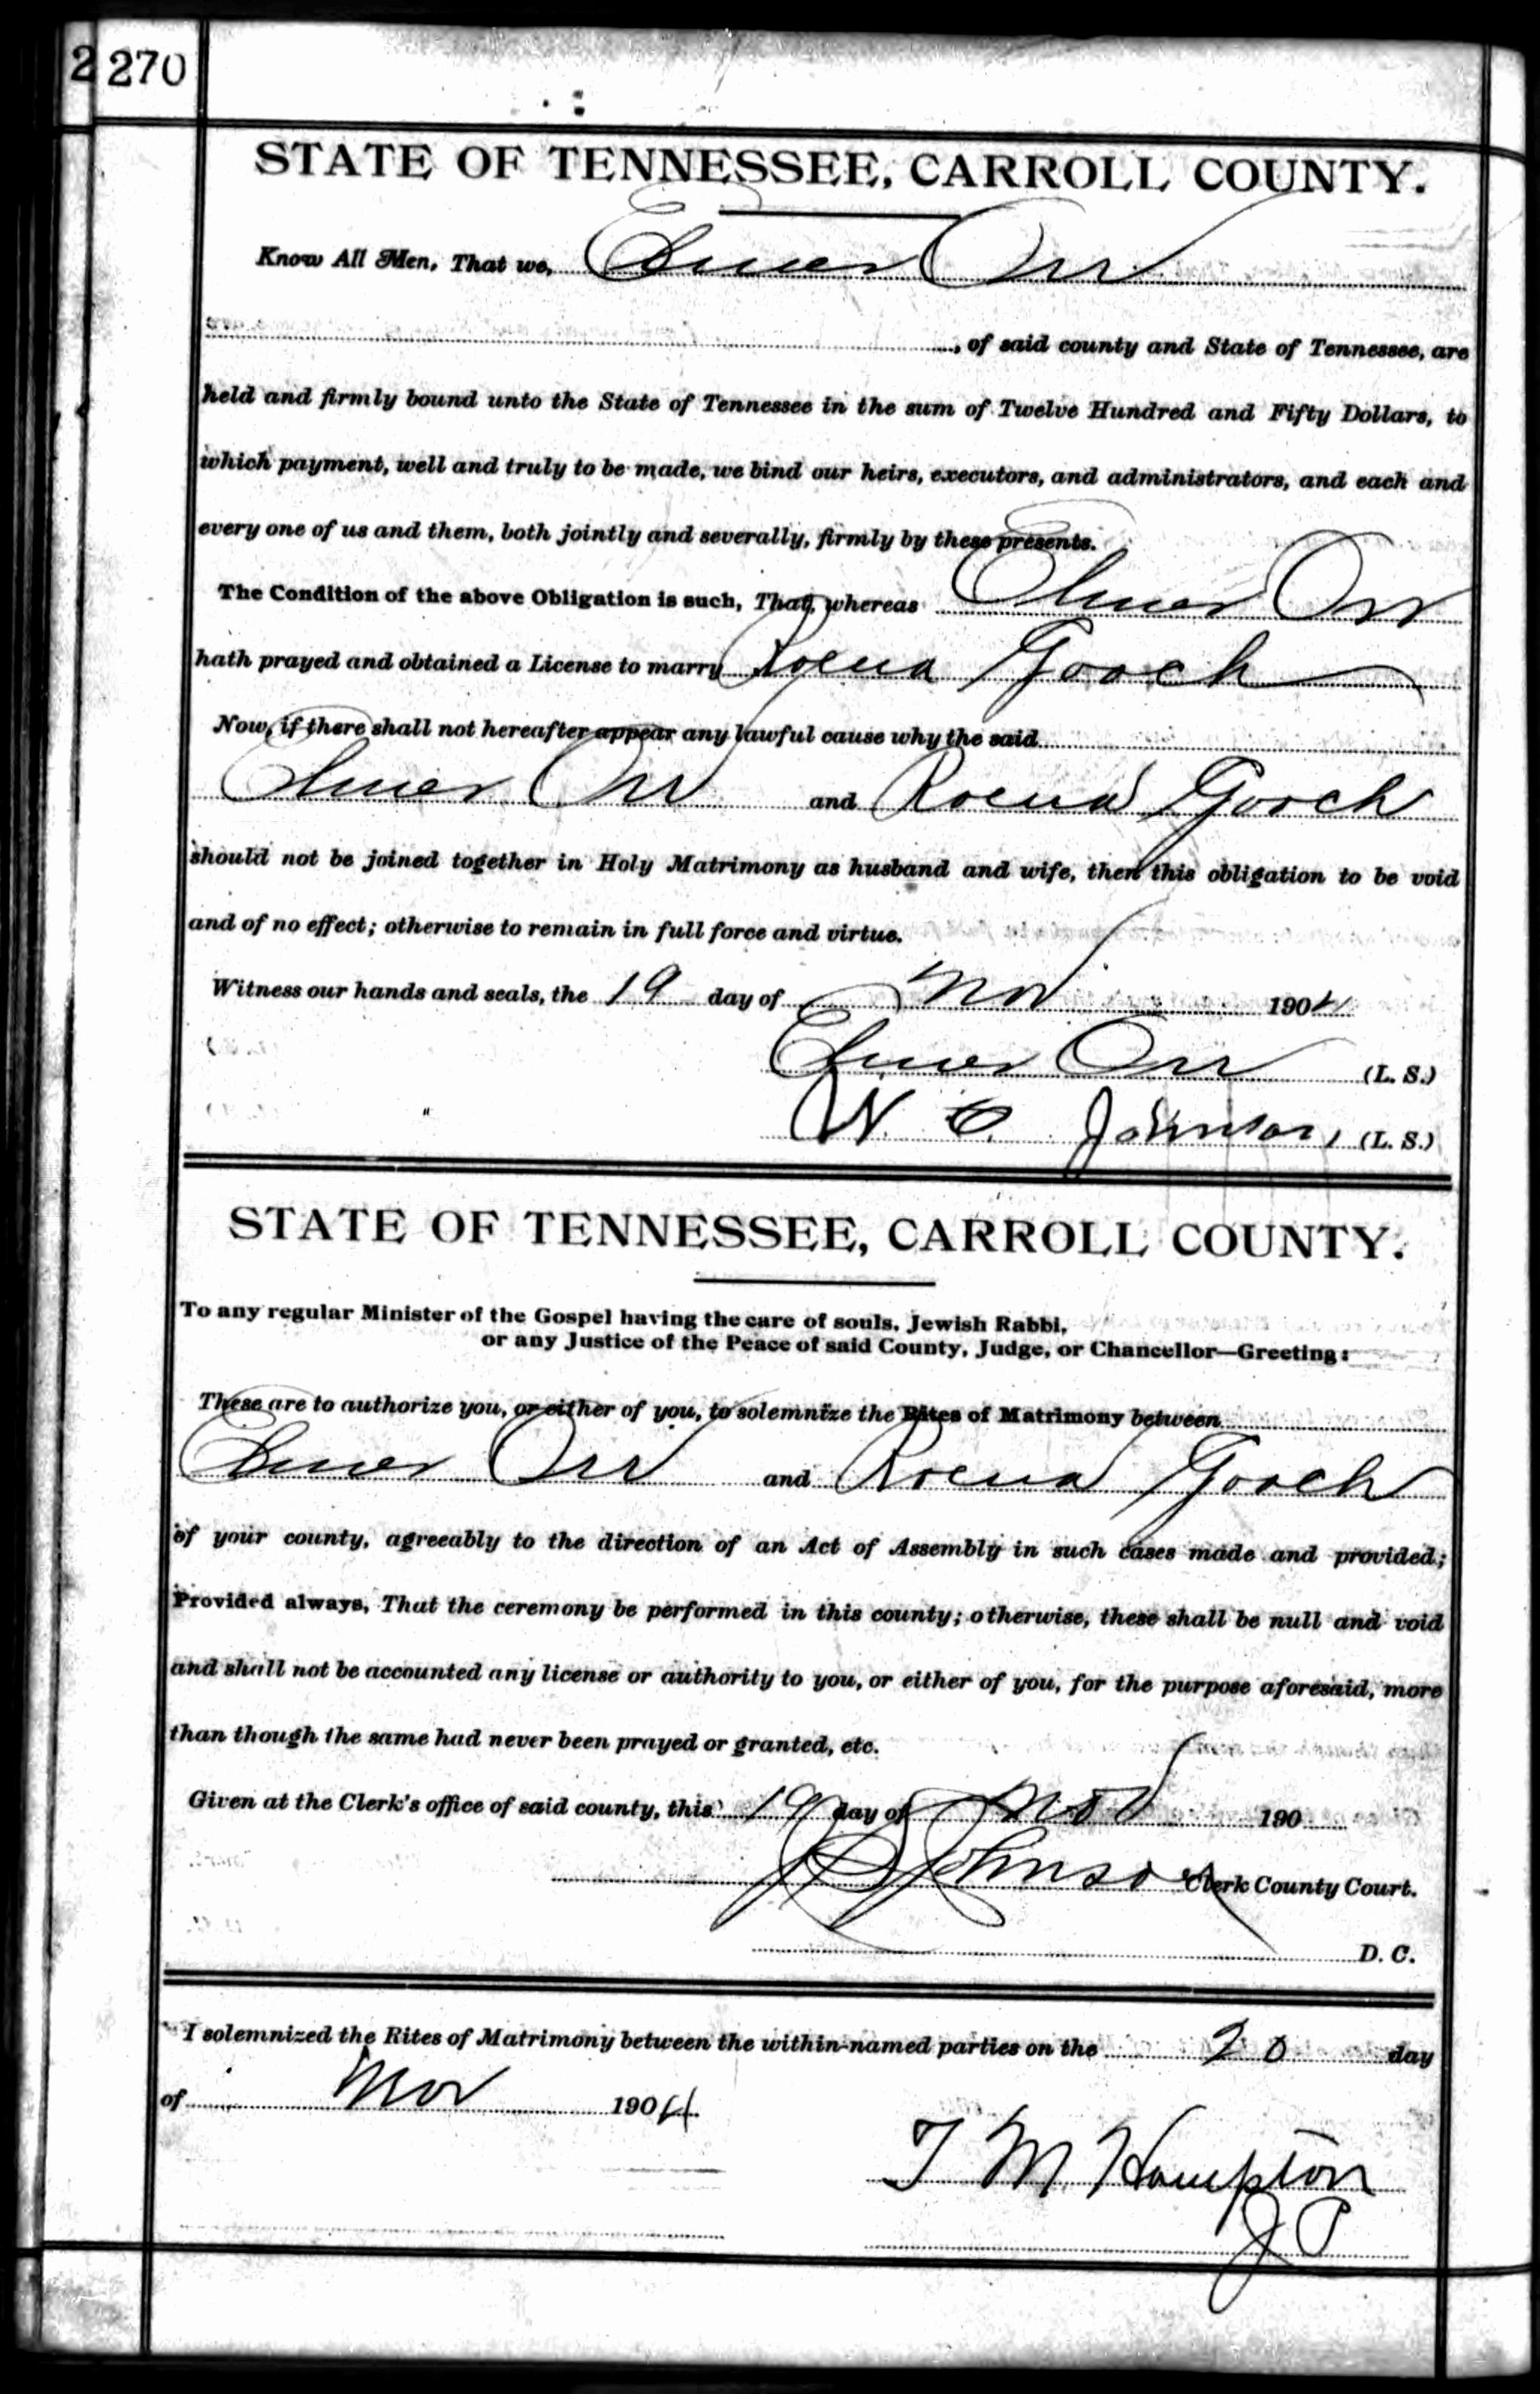 2 270
STATE OF TENNESSEE, CARROLL COUNTY.
Know All Men, That we, Elmer Orr
, of said county and State of Tennessee, are
held and firmly bound unto the State of Tennessee in the sum of Twelve Hundred and Fifty Dollars, to
which payment, well and truly to be made, we bind our heirs, executors, and administrators, and each and
every one of us and them, both jointly and severally, firmly by these presents.
The Condition of the above Obligation is such, That, whereas Elmer Orr
hath prayed and obtained a License to marry Roena Gooch
Now, if there shall not hereafter appear any lawful cause why the said
Elmer Orr and Roena Gooch
should not be joined together in Holy Matrimony as husband and wife, then this obligation to be void
and of no effect; otherwise to remain in full force and virtue.
Witness our hands and seals, the 19 day of Nov 1904
Elmer Orr (L. S.)
W. C. Johnson, (L. S.)
STATE OF TENNESSEE, CARROLL COUNTY.
To any regular Minister of the Gospel having the care of souls, Jewish Rabbi,
or any Justice of the Peace of said County, Judge, or Chancellor—Greeting:
These are to authorize you, or either of you, to solemnize the Rites of Matrimony between
Elmer Orr and Roena Gooch
of your county, agreeably to the direction of an Act of Assembly in such cases made and provided;
Provided always, That the ceremony be performed in this county; otherwise, these shall be null and void
and shall not be accounted any license or authority to you, or either of you, for the purpose aforesaid, more
than though the same had never been prayed or granted, etc.
Given at the Clerk's office of said county, this 19 day of Nov 190
Johnson Clerk County Court.
D. C.
I solemnized the Rites of Matrimony between the within-named parties on the 20 day
of Nov 1904
T M Hampton
J P